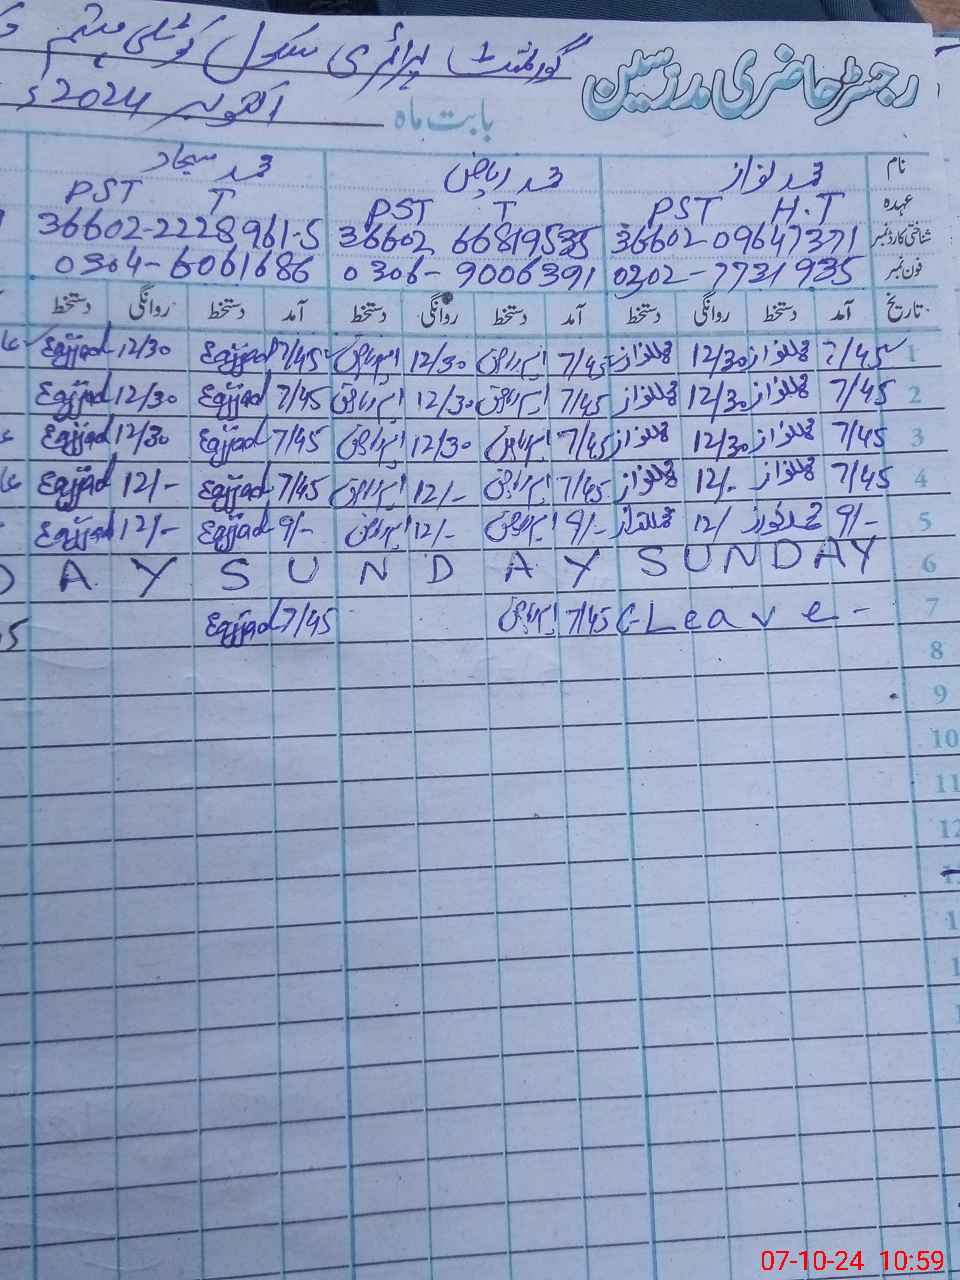 رجسٹر حاضری مدرسین گورنمنٹ پرائمری سکول
بابت ماہ اکتوبر 2024ء
نام محمد نواز محمد ریاض محمد سجاد
عہدہ PST H.T PST T PST T
شناختی کارڈ نمبر 36602-09647371 36602 66819535 36602-2228961-5
فون نمبر 0302-7731935 0306-9006391 0304-6061686
تاریخ آمد دستخط روانگی دستخط آمد دستخط روانگی دستخط آمد دستخط روانگی دستخط
1 7/45 محمد نواز 12/30 محمد نواز 7/45 ایم ریاض 12/30 ایم ریاض 7/45 Sajjad 12/30 Sajjad
2 7/45 محمد نواز 12/30 محمد نواز 7/45 ایم ریاض 12/30 ایم ریاض 7/45 Sajjad 12/30 Sajjad
3 7/45 محمد نواز 12/30 محمد نواز 7/45 ایم ریاض 12/30 ایم ریاض 7/45 Sajjad 12/30 Sajjad
4 7/45 محمد نواز 12/- محمد نواز 7/45 ایم ریاض 12/- ایم ریاض 7/45 Sajjad 12/- Sajjad
5 9/- محمد نواز 12/ محمد نواز 9/- ایم ریاض 12/- ایم ریاض 9/- Sajjad 12/- Sajjad
6 D A Y S U N D A Y S U N D A Y
7 C-Leave - 7/45 ایم ریاض 7/45 Sajjad
8
9
10
11
12
07-10-24 10:59